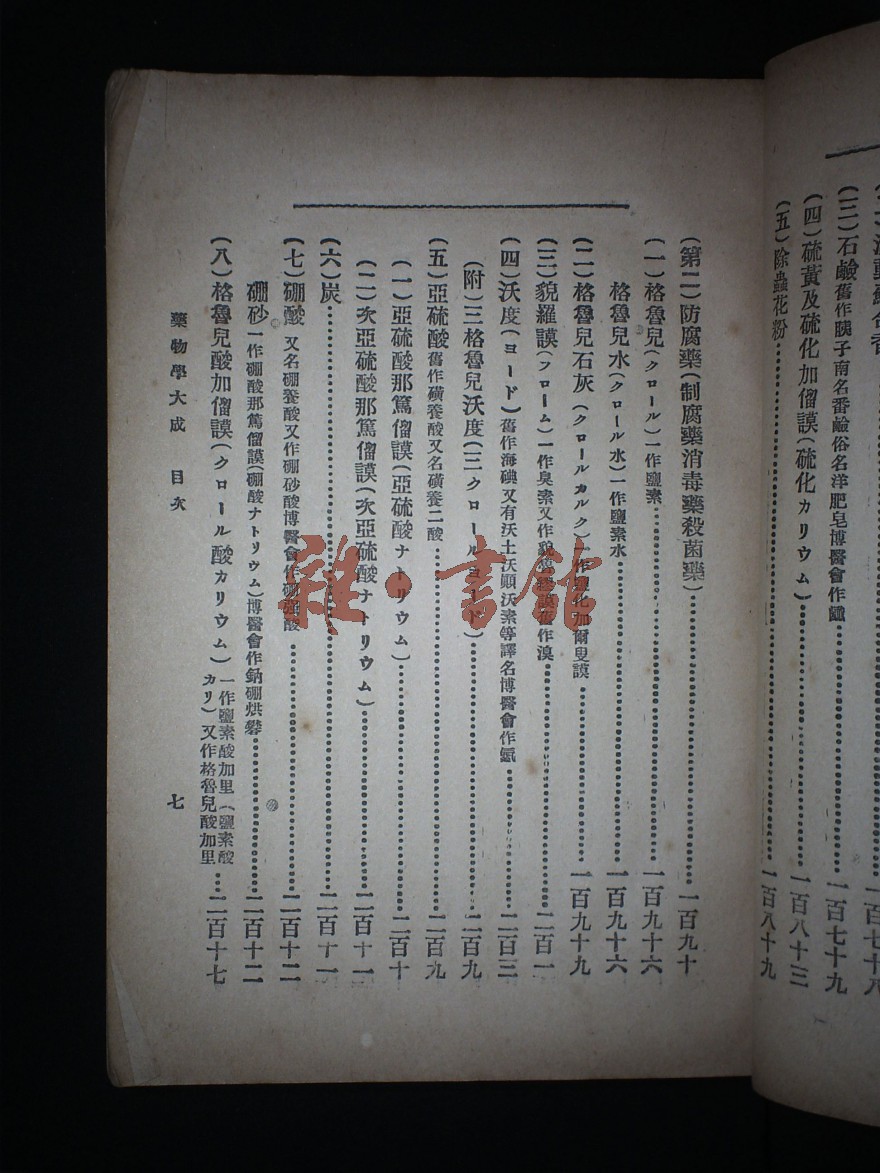 (三)石鹼舊作胰子南名番鹼俗名洋肥皂博醫會作鹻……一百七十九
(四)硫黃及硫化加僧謨(硫化カリウム)……一百八十三
(五)除蟲花粉……一百八十九
(第二)防腐藥(制腐藥消毒藥殺菌藥)……一百九十
(一)格魯兒(クロール)一作鹽素……一百九十六
格魯兒水(クロール水)一作鹽素水……一百九十六
(二)格魯兒石灰(クロールカルク)一作鹽化加爾叟謨……一百九十九
(三)貌羅謨(フローム)一作臭素又作貌魯繆謨舊作溴……二百一
(四)沃度(ヨード)舊作海碘又有沃土沃顚沃素等譯名博醫會作𣱛……二百三
(附)三格魯兒沃度(三クロールヨード)……二百九
(五)亞硫酸舊作磺養酸又名磺養二酸……二百九
(一)亞硫酸那篤僧謨(亞硫酸ナトリウム)……二百十
(二)次亞硫酸那篤僧謨(次亞硫酸ナトリウム)……二百十一
(六)炭……二百十一
(七)硼酸 又名硼養酸又作硼砂酸博醫會作硼强酸……二百十二
硼砂一作硼酸那篤僧謨(硼酸ナトリウム)博醫會作鈉硼烘礬……二百十二
(八)格魯兒酸加僧謨(クロール酸カリウム)一作鹽素酸加里(鹽素酸カリ)又作格魯兒酸加里……二百十七
藥物學大成 目次 七
雜·書館